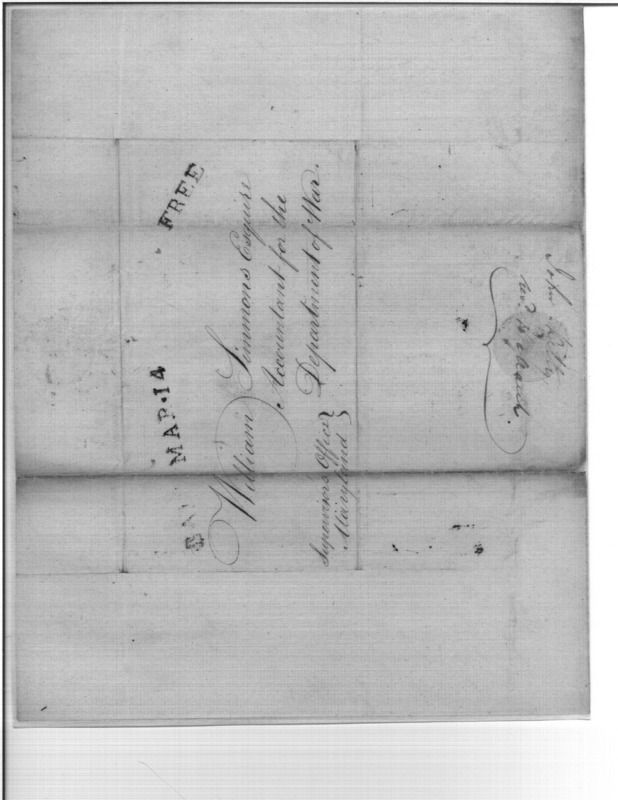 MAR·14
FREE
William Simmons Esquire
Accountant for the
Department of War.
Supervisor's Office
Maryland
John Kilty